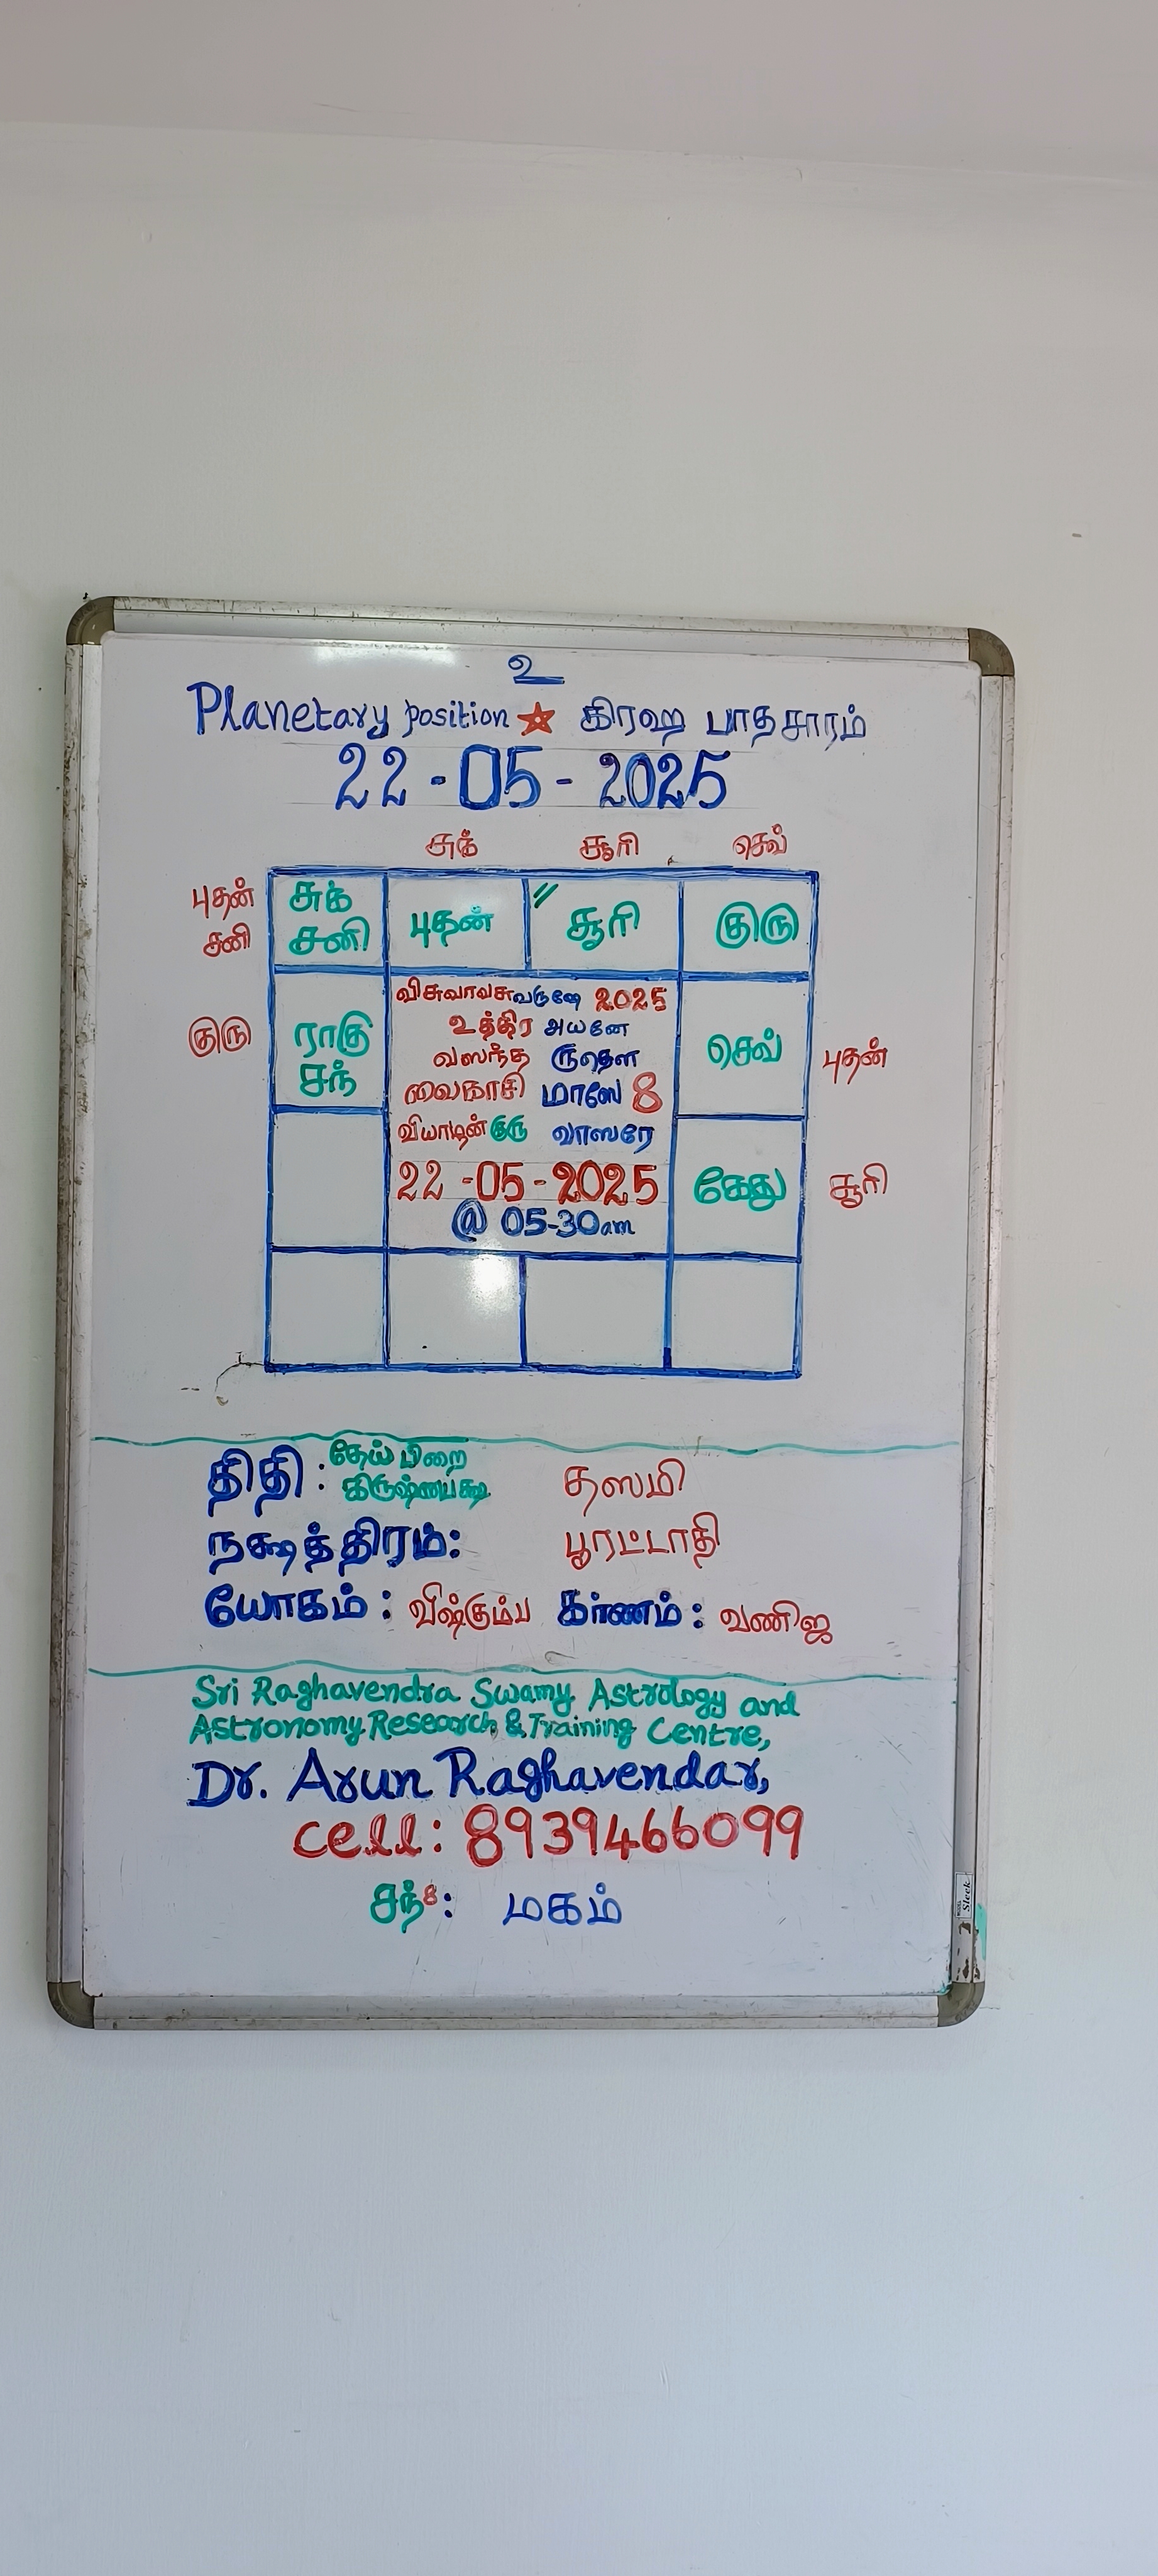 உ
Planetary position ★ கிரஹ பாதசாரம்
22-05-2025
சுக் சூரி செவ்
புதன் சனி
சுக் சனி புதன் சூரி குரு
குரு
ராகு சந்
விசுவாவசுவருஷே 2025
உத்திர அயனே
வஸந்த ருதௌ
வைகாசி மாஸே 8
வியாழன் குரு வாஸரே
22-05-2025
@ 05-30am
செவ் புதன்
கேது சூரி
திதி : தேய்பிறை
கிருஷ்ணபக்ஷ தஸமி
நக்ஷத்திரம்: பூரட்டாதி
யோகம் : விஷ்கும்ப கர்ணம் : வணிஜ
Sri Raghavendra Swamy Astrology and
Astronomy Research & Training Centre,
Dr. Arun Raghavendar,
cell: 8939466099
சந்8: மகம்
Sleek